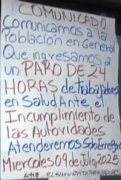 COMUNICADO
Comunicamos a la
Población en General
Que ingresamos a
un PARO DE 24
HORAS de Trabajadores
en Salud Ante el
Incumplimiento de
las Autoridades
Atenderemos Solo Emergencia
Miercoles 09 de Julio 2025